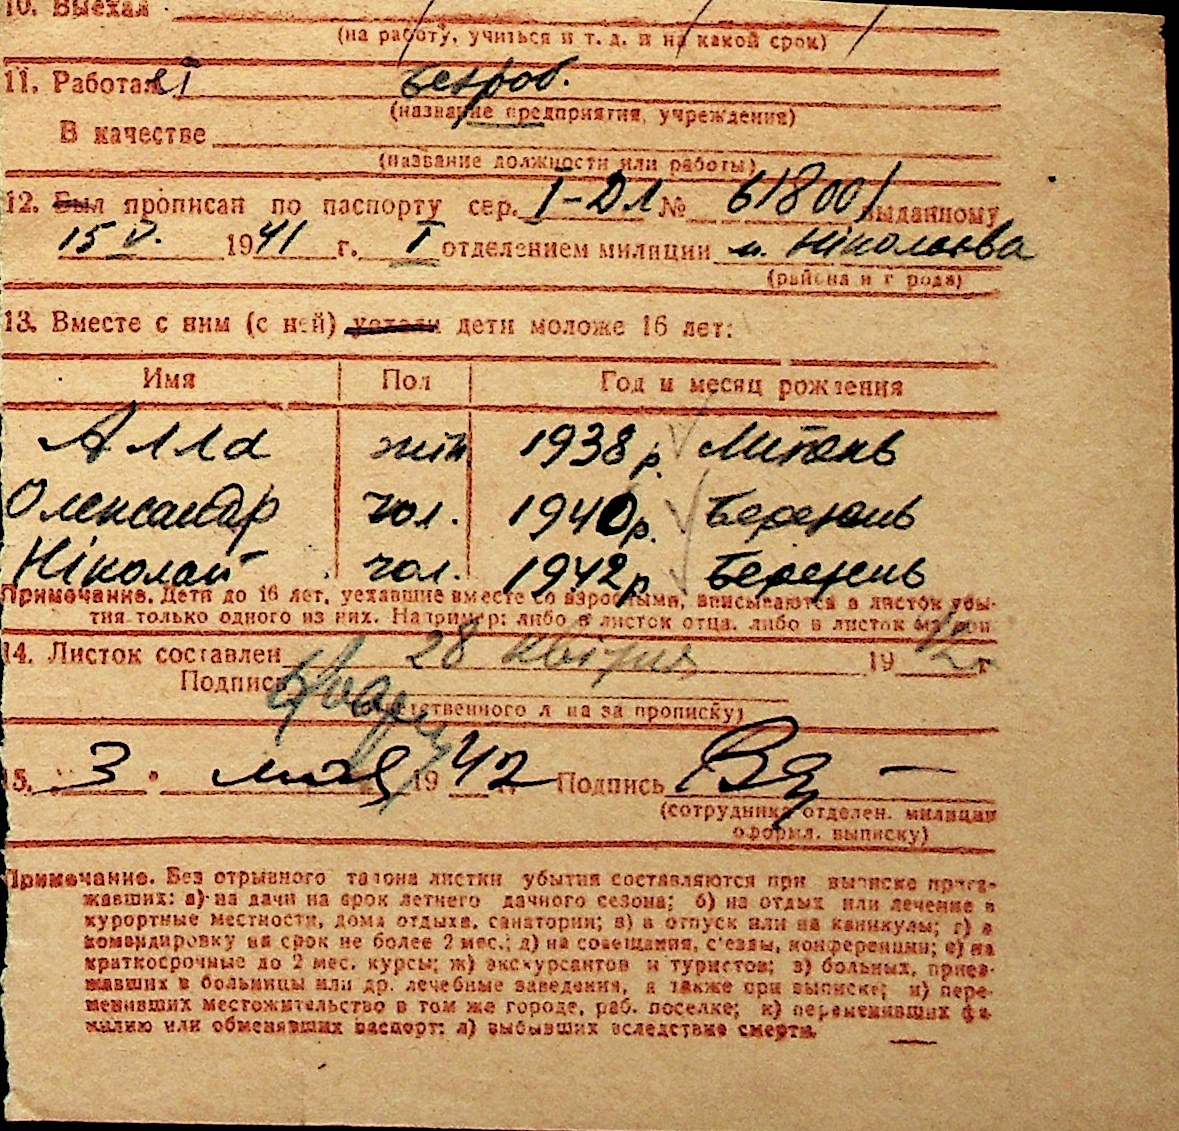 10. Выехал
(на работу, учиться и т. д. и на какой срок)
11. Работал безроб.
(название предприятия, учреждения)
В качестве
(название должности или работы)
12. Был прописан по паспорту сер. I-ДЛ № 618001 выданному
15 V. 1941 г. I отделением милиции м. Ніколаєва
(района и города)
13. Вместе с ним (с ней) уехали дети моложе 16 лет:
Имя Пол Год и месяц рождения
Алла жін 1938 р. Литень
Олександр чол. 1940 р. Березень
Ніколай чол. 1942 р Березень
Примечание. Дети до 16 лет, уехавшие вместе со взрослыми, вписываются в листок убы-
тия только одного из них. Например: либо в листок отца, либо в листок матери
14. Листок составлен 28 квітня 1942 г
Подпись
(ответственного лица за прописку)
15. " 3 " мая 1942 г. Подпись
(сотрудника отделен. милиции
оформл. выписку)
Примечание. Без отрывного талона листки убытия составляются при выписке приез-
жавших: а) на дачи на срок летнего дачного сезона; б) на отдых или лечение в
курортные местности, дома отдыха, санатории; в) в отпуск или на каникулы; г) в
командировку на срок не более 2 мес.; д) на совещания, с'езды, конференции; е) на
краткосрочные до 2 мес. курсы; ж) экскурсантов и туристов; з) больных, приез-
жавших в больницы или др. лечебные заведения, а также при выписке; и) пере-
менивших местожительство в том же городе, раб. поселке; к) переменивших фа-
милию или обменявших паспорт; л) выбывших вследствие смерти.